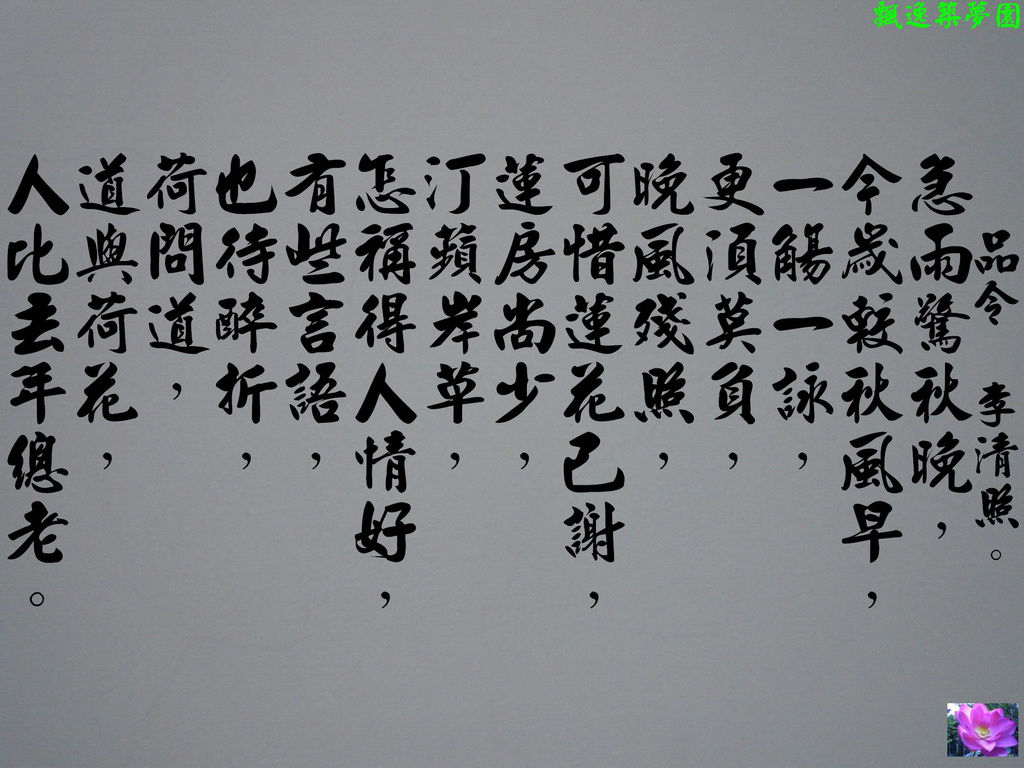 飄逸築夢園
品令 李清照。
急雨驚秋晚，
今歲較秋風早，
一觴一詠，
更須莫負，
晚風殘照，
可惜蓮花已謝，
蓮房尚少，
汀蘋岸草，
怎稱得人情好，
有些言語，
也待醉折，
荷問道，
道與荷花，
人比去年總老。